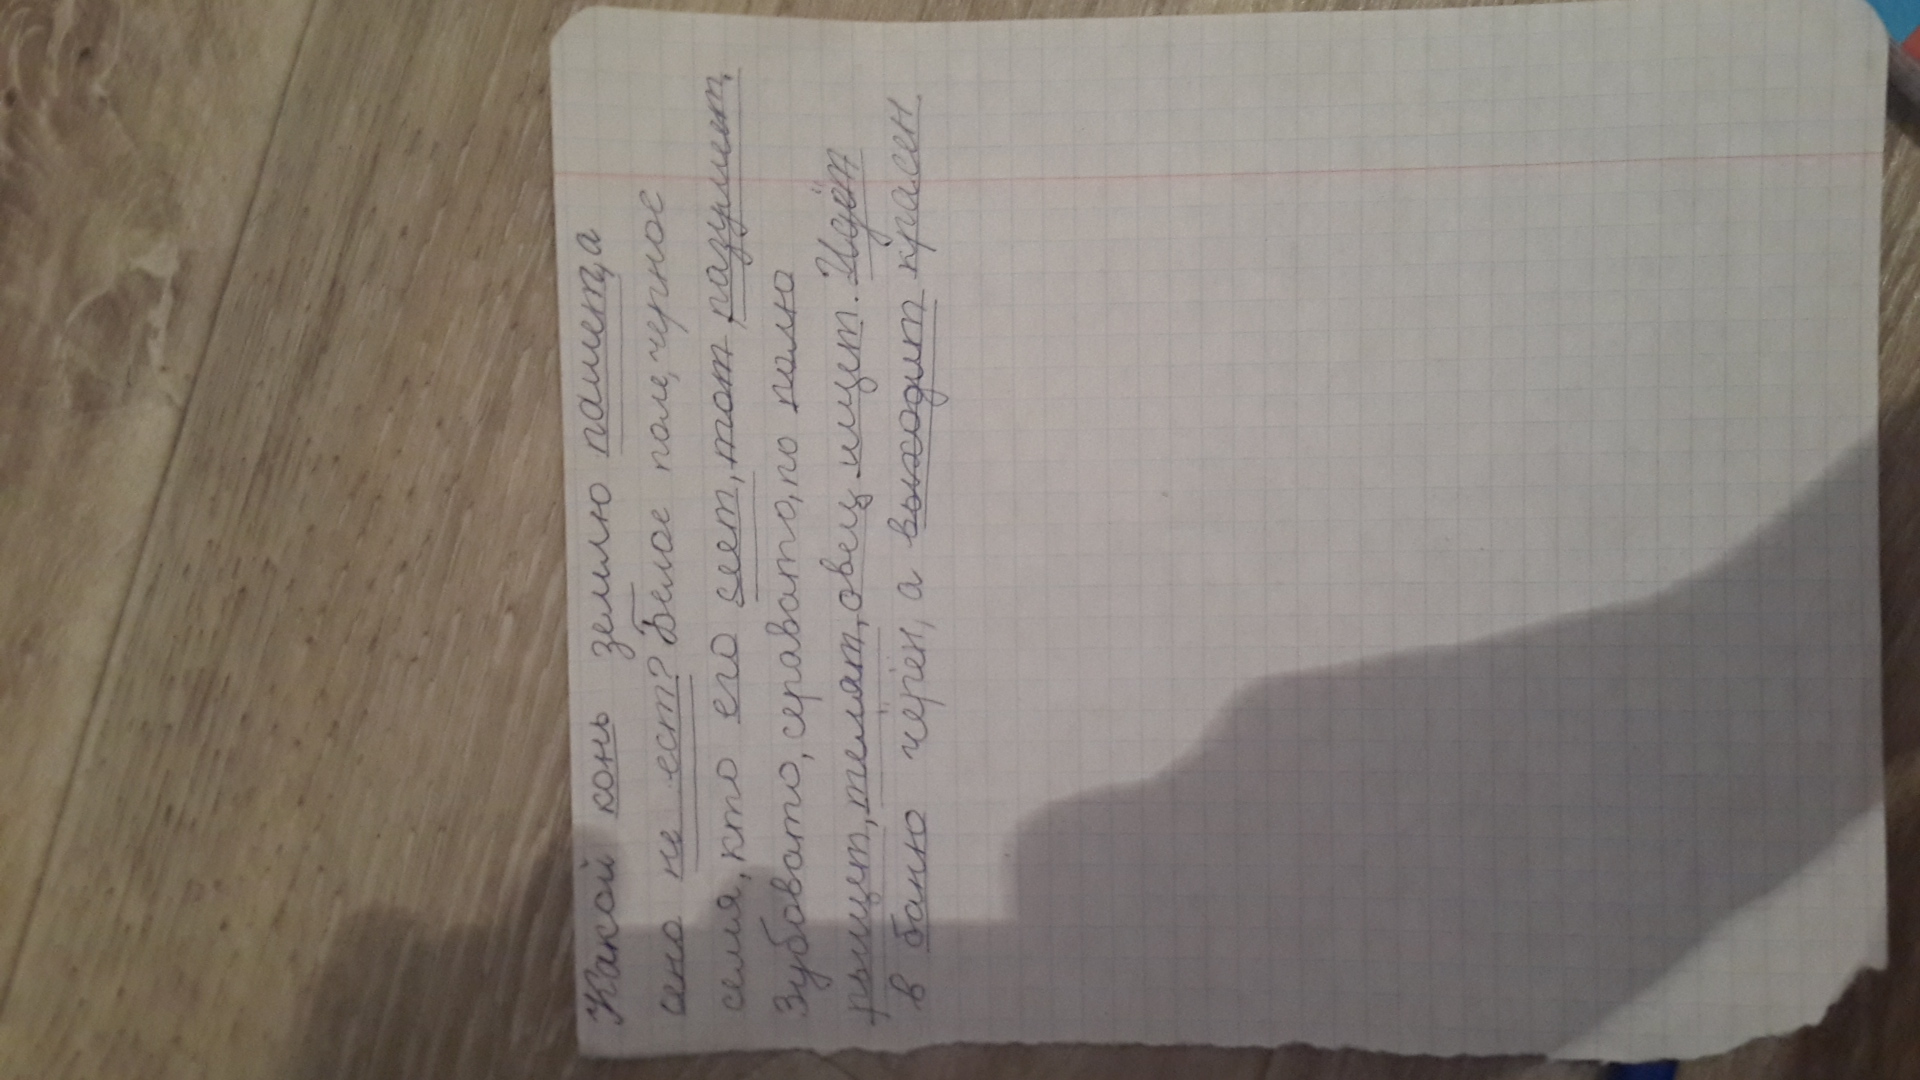 Какой конь землю пашет, а
сено не ест? Белое поле, черное
семя, кто его сеет, тот разумеет.
Зубовато, серавато, по полю
рыщет, телят, овец ищет. Идёт
в баню чёрен, а выходит красен.